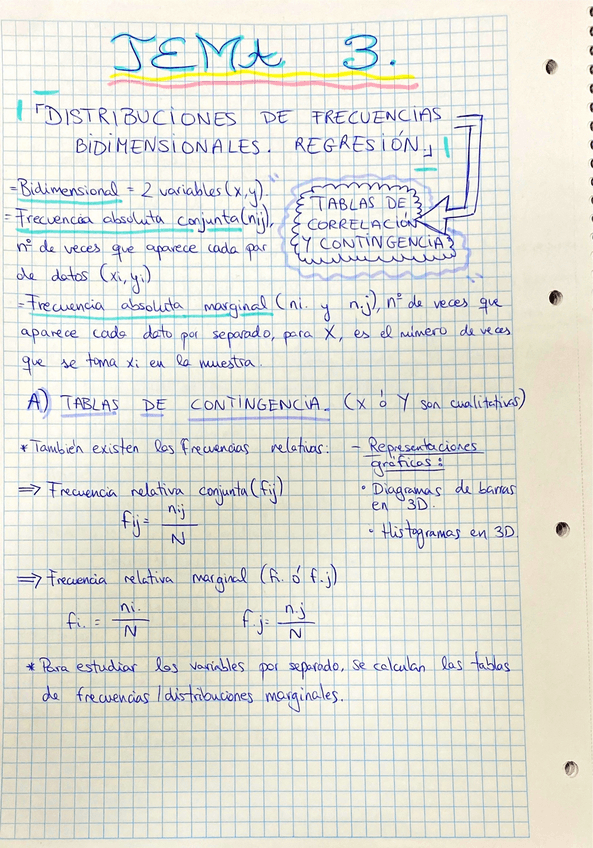 TEMA 3.
「DISTRIBUCIONES DE FRECUENCIAS
BIDIMENSIONALES. REGRESIÓN」
TABLAS DE
CORRELACIÓN
Y CONTINGENCIA
= Bidimensional = 2 variables (x,y).
= Frecuencia absoluta conjunta (nij),
nº de veces que aparece cada par
de datos (xi, yi)
= Frecuencia absoluta marginal (ni. y n.j), nº de veces que
aparece cada dato por separado, para X, es el número de veces
que se toma xi en la muestra.
A) TABLAS DE CONTINGENCIA. (X ó Y son cualitativas)
* También existen las frecuencias relativas:
⇒ Frecuencia relativa conjunta (fij)
fij = nij / N
- Representaciones
gráficas:
• Diagramas de barras
en 3D.
• Histogramas en 3D.
⇒ Frecuencia relativa marginal (fi. ó f.j)
fi. = ni. / N f.j = n.j / N
* Para estudiar las variables por separado, se calculan las tablas
de frecuencias / distribuciones marginales.